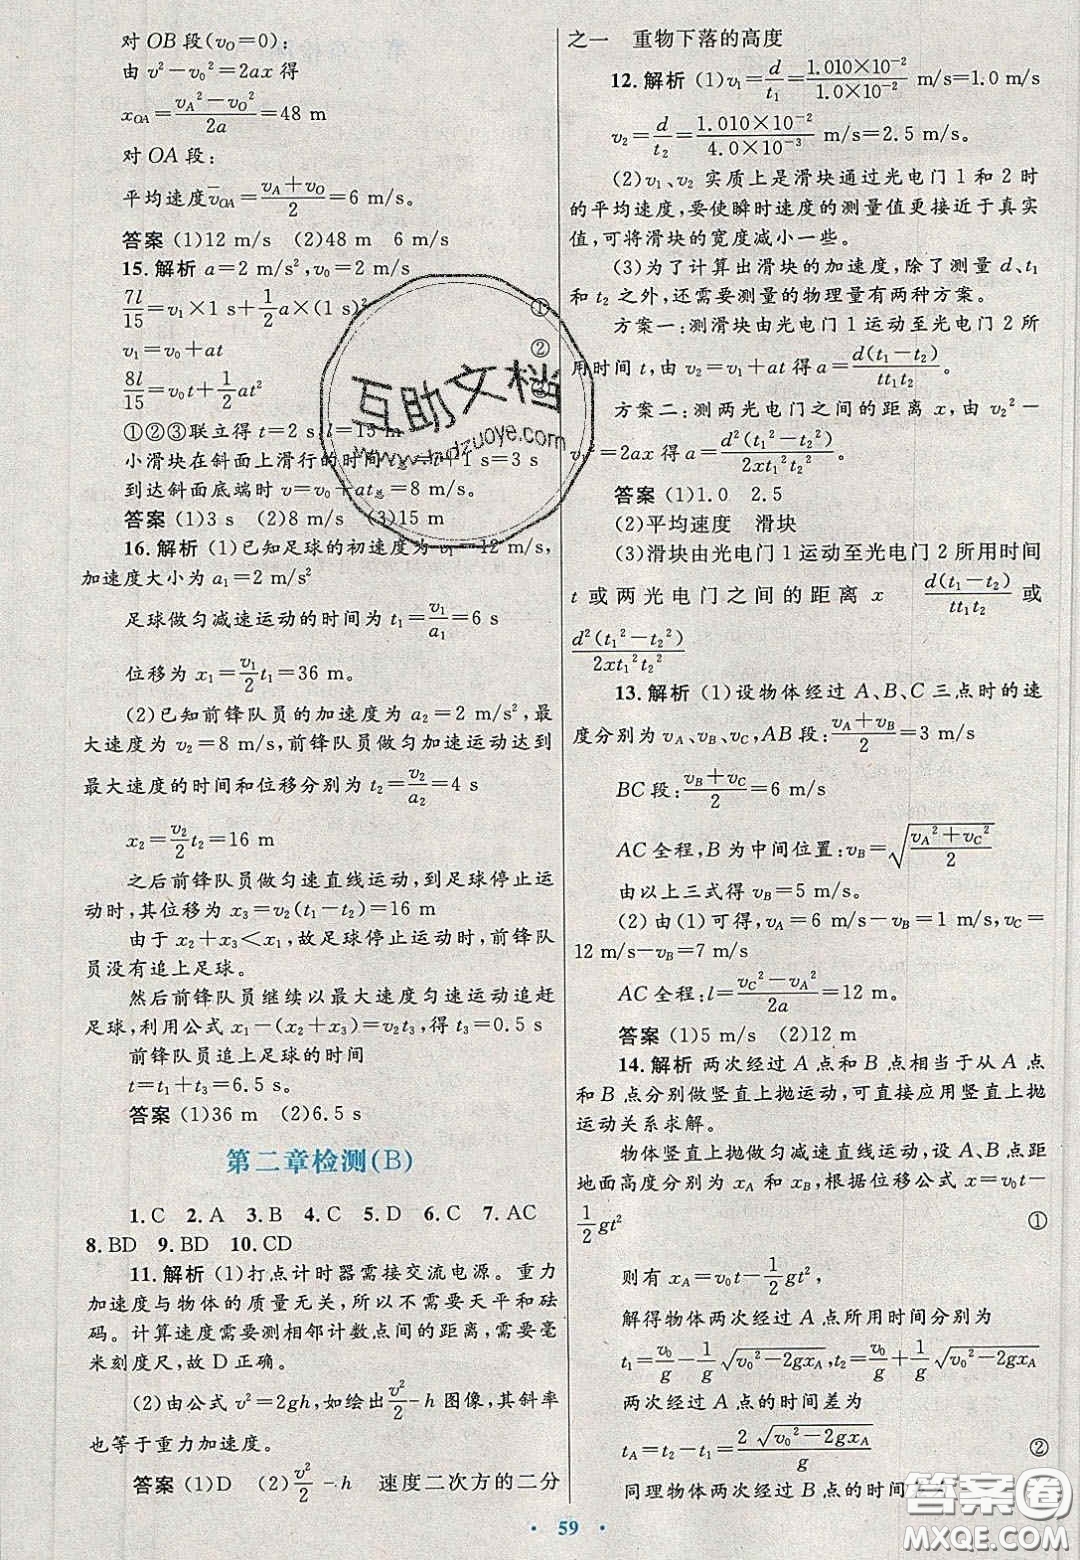 对 OB 段(v_O=0):
由 v²-v₀²=2ax 得
x_OA=(v_A²-v_O²)/2a=48 m
对 OA 段:
平均速度 v̄_OA=(v_A+v_O)/2=6 m/s
答案 (1)12 m/s (2)48 m 6 m/s
15.解析 a=2 m/s²,v₀=2 m/s
7l/15=v₁×1 s+1/2 a×(1 s)² ①
v₁=v₀+at ②
8l/15=v₀t+1/2 at²
①②③联立得 t=2 s,l=15 m
小滑块在斜面上滑行的时间 t总=t+1 s=3 s
到达斜面底端时 v=v₀+at总=8 m/s
答案 (1)3 s (2)8 m/s (3)15 m
16.解析 (1)已知足球的初速度为 v₁=12 m/s,
加速度大小为 a₁=2 m/s²
足球做匀减速运动的时间为 t₁=v₁/a₁=6 s
位移为 x₁=v₁/2 t₁=36 m
(2)已知前锋队员的加速度为 a₂=2 m/s²,最
大速度为 v₂=8 m/s,前锋队员做匀加速运动达到
最大速度的时间和位移分别为 t₂=v₂/a₂=4 s
x₂=v₂/2 t₂=16 m
之后前锋队员做匀速直线运动,到足球停止运
动时,其位移为 x₃=v₂(t₁-t₂)=16 m
由于 x₂+x₃<x₁,故足球停止运动时,前锋队
员没有追上足球。
然后前锋队员继续以最大速度匀速运动追赶
足球,利用公式 x₁-(x₂+x₃)=v₂t₃,得 t₃=0.5 s
前锋队员追上足球的时间
t=t₁+t₃=6.5 s。
答案 (1)36 m (2)6.5 s
第二章检测(B)
1.C 2.A 3.B 4.C 5.D 6.C 7.AC
8.BD 9.BD 10.CD
11.解析 (1)打点计时器需接交流电源。重力
加速度与物体的质量无关,所以不需要天平和砝
码。计算速度需要测相邻计数点间的距离,需要毫
米刻度尺,故 D 正确。
(2)由公式 v²=2gh,如绘出v²/2-h 图像,其斜率
也等于重力加速度。
答案 (1)D (2)v²/2-h 速度二次方的二分
之一 重物下落的高度
12.解析 (1)v₁=d/t₁=(1.010×10⁻²)/(1.0×10⁻²) m/s=1.0 m/s
v₂=d/t₂=(1.010×10⁻²)/(4.0×10⁻³) m/s=2.5 m/s。
(2)v₁、v₂ 实质上是滑块通过光电门 1 和 2 时
的平均速度,要使瞬时速度的测量值更接近于真实
值,可将滑块的宽度减小一些。
(3)为了计算出滑块的加速度,除了测量 d、t₁
和 t₂ 之外,还需要测量的物理量有两种方案。
方案一:测滑块由光电门 1 运动至光电门 2 所
用时间 t,由 v₂=v₁+at 得 a=d(t₁-t₂)/tt₁t₂。
方案二:测两光电门之间的距离 x,由 v₂²-
v₁²=2ax 得 a=d²(t₁²-t₂²)/2xt₁²t₂²。
答案 (1)1.0 2.5
(2)平均速度 滑块
(3)滑块由光电门 1 运动至光电门 2 所用时间
t 或两光电门之间的距离 x d(t₁-t₂)/tt₁t₂ 或
d²(t₁²-t₂²)/2xt₁²t₂²
13.解析 (1)设物体经过 A、B、C 三点时的速
度分别为 v_A、v_B、v_C,AB 段:(v_A+v_B)/2=3 m/s
BC 段:(v_B+v_C)/2=6 m/s
AC 全程,B 为中间位置:v_B=√((v_A²+v_C²)/2)
由以上三式得 v_B=5 m/s。
(2)由(1)可得,v_A=6 m/s-v_B=1 m/s,v_C=
12 m/s-v_B=7 m/s
AC 全程:l=(v_C²-v_A²)/2a=12 m。
答案 (1)5 m/s (2)12 m
14.解析 两次经过 A 点和 B 点相当于从 A 点
和 B 点分别做竖直上抛运动,可直接应用竖直上抛
运动关系求解。
物体竖直上抛做匀减速直线运动,设 A、B 点距
地面高度分别为 x_A 和 x_B,根据位移公式 x=v₀t-
1/2 gt² ①
则有 x_A=v₀t-1/2 gt²,
解得物体两次经过 A 点所用时间分别为
t₁=v₀/g-1/g √(v₀²-2gx_A),t₂=v₀/g+1/g √(v₀²-2gx_A)
两次经过 A 点的时间差为
t_A=t₂-t₁=2√(v₀²-2gx_A)/g ②
同理物体两次经过 B 点的时间差
· 59 ·
互助文档
www.hdzuoye.com
答案圈
MXQE.COM